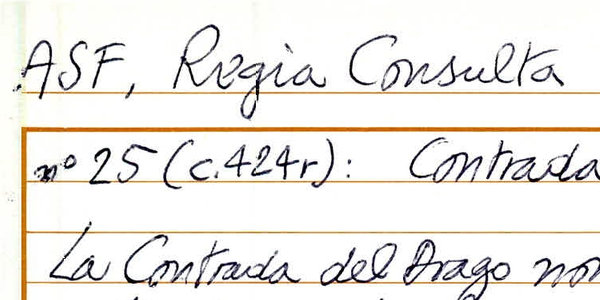 ASF, Regia Consulta
nº 25 (c.424r): Contrada
La Contrada del Drago non